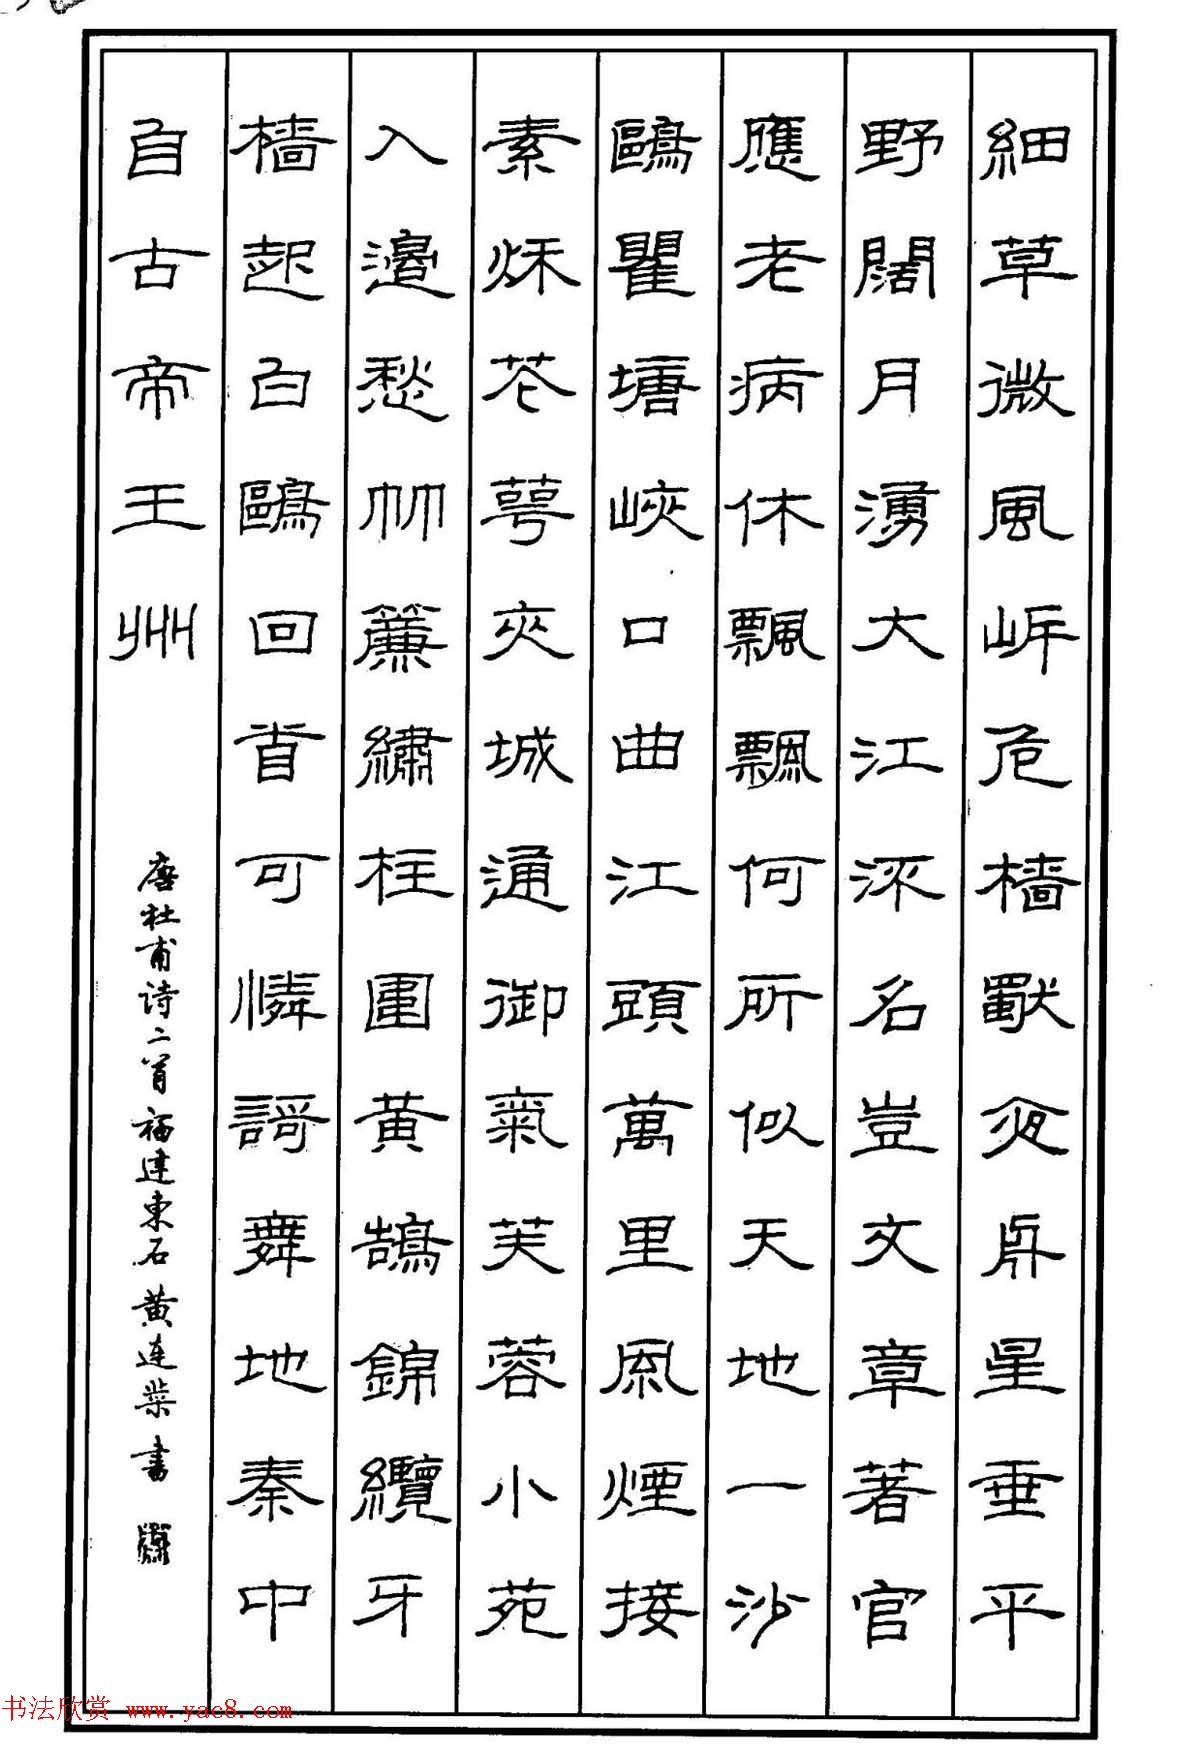 細草微風岸危檣獨夜舟星垂平
野闊月湧大江流名豈文章著官
應老病休飄飄何所似天地一沙
鷗瞿塘峽口曲江頭萬里風煙接
素秌花萼夾城通御氣芙蓉小苑
入邊愁珠簾繡柱圍黃鵠錦纜牙
檣起白鷗回首可憐謌舞地秦中
自古帝王州
唐杜甫诗二首福建東石黄连柴書
书法欣赏 www.yac8.com